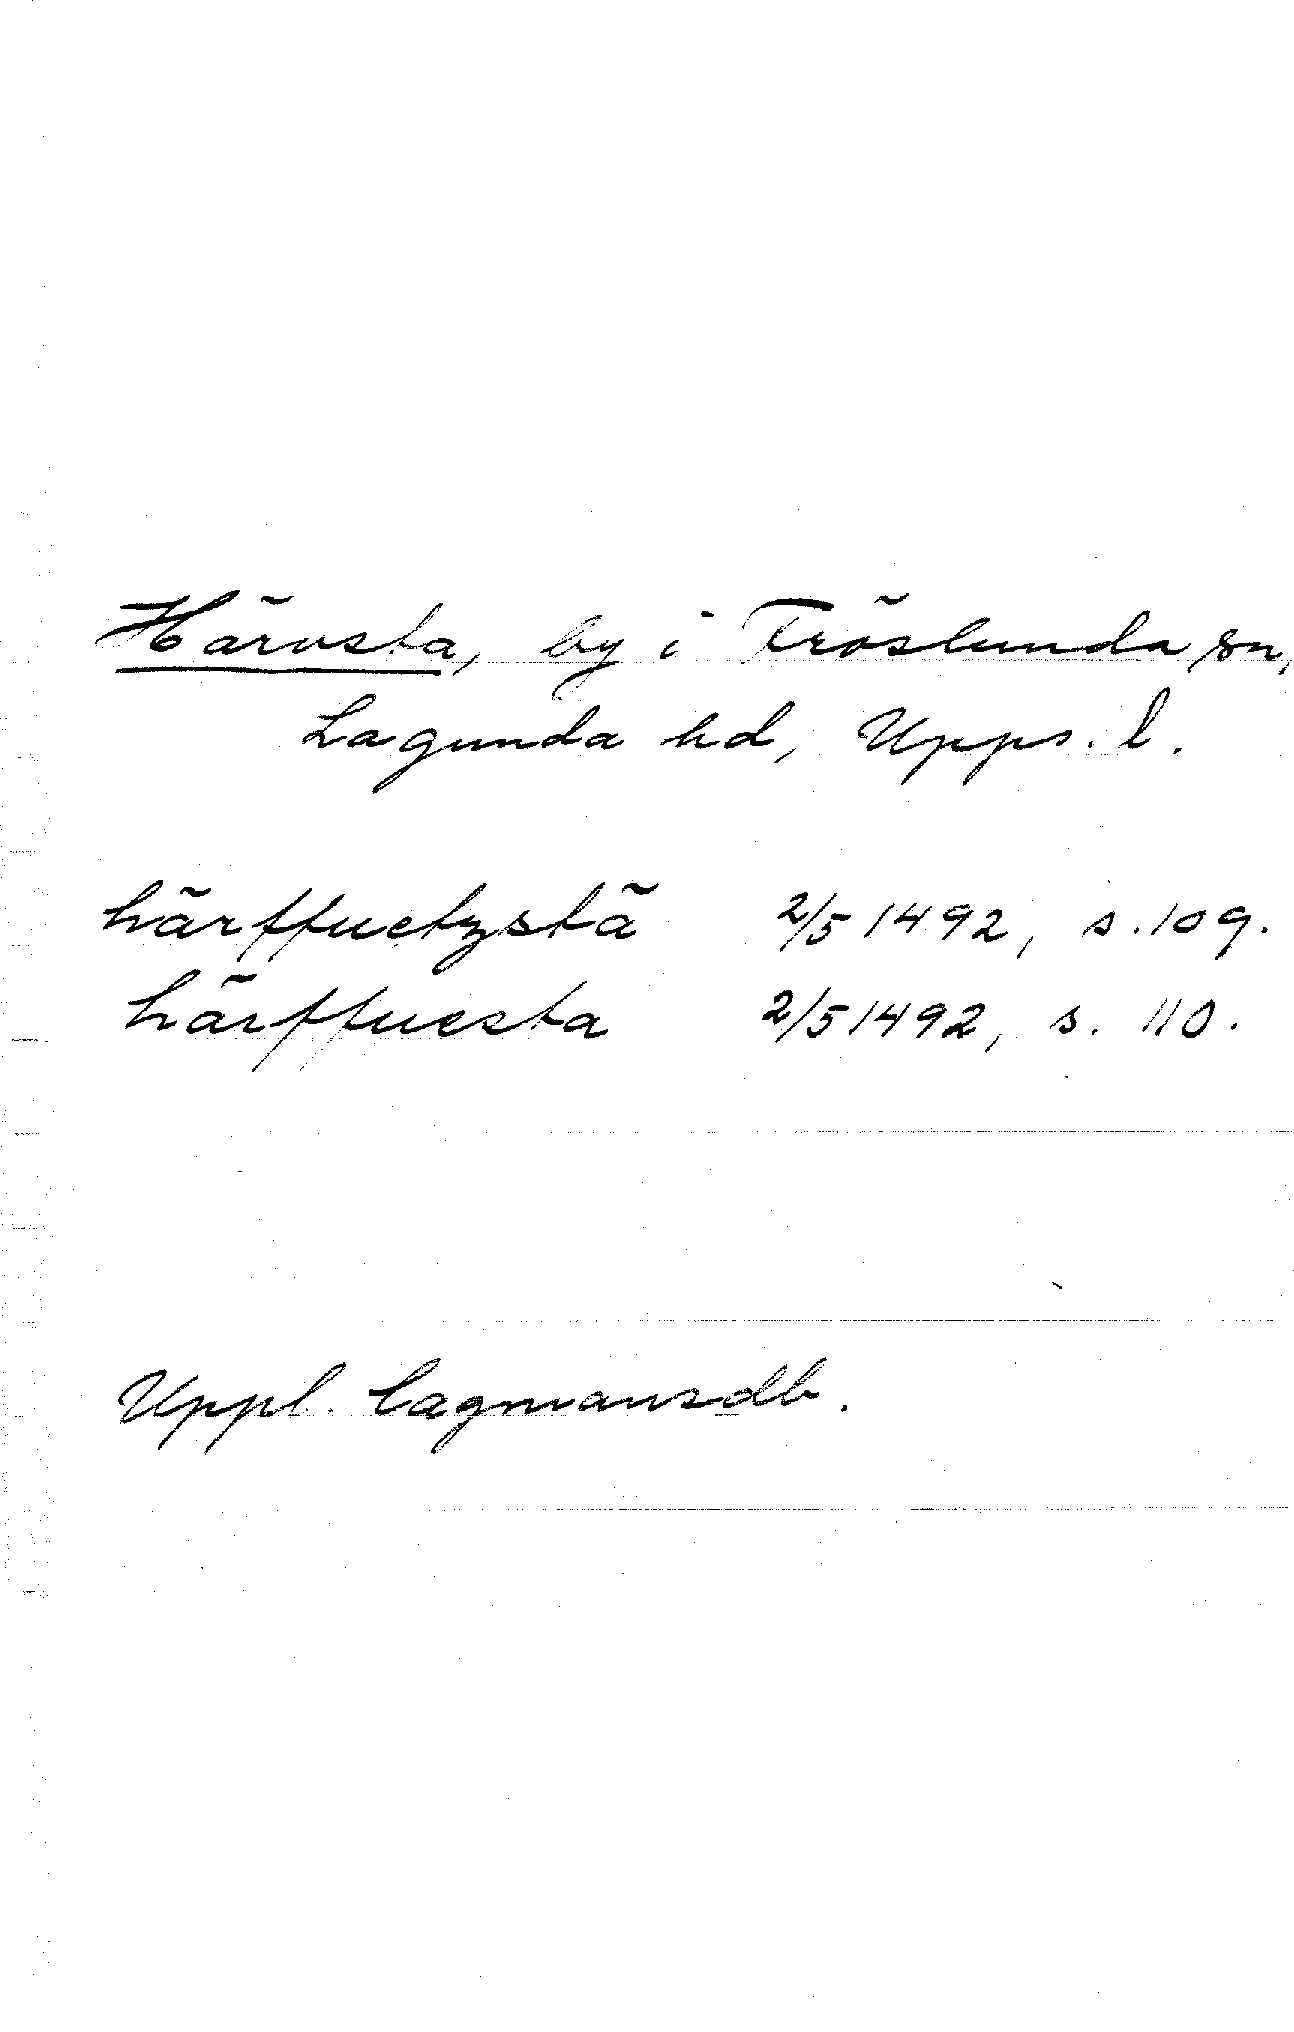 Härvsta, by i Fröslunda sn,
Lagunda hd, Upps. l.
härffuetzstä 2/5 1492, s. 109.
härffuesta 2/5 1492, s. 110.
Uppl. lagmansdb.